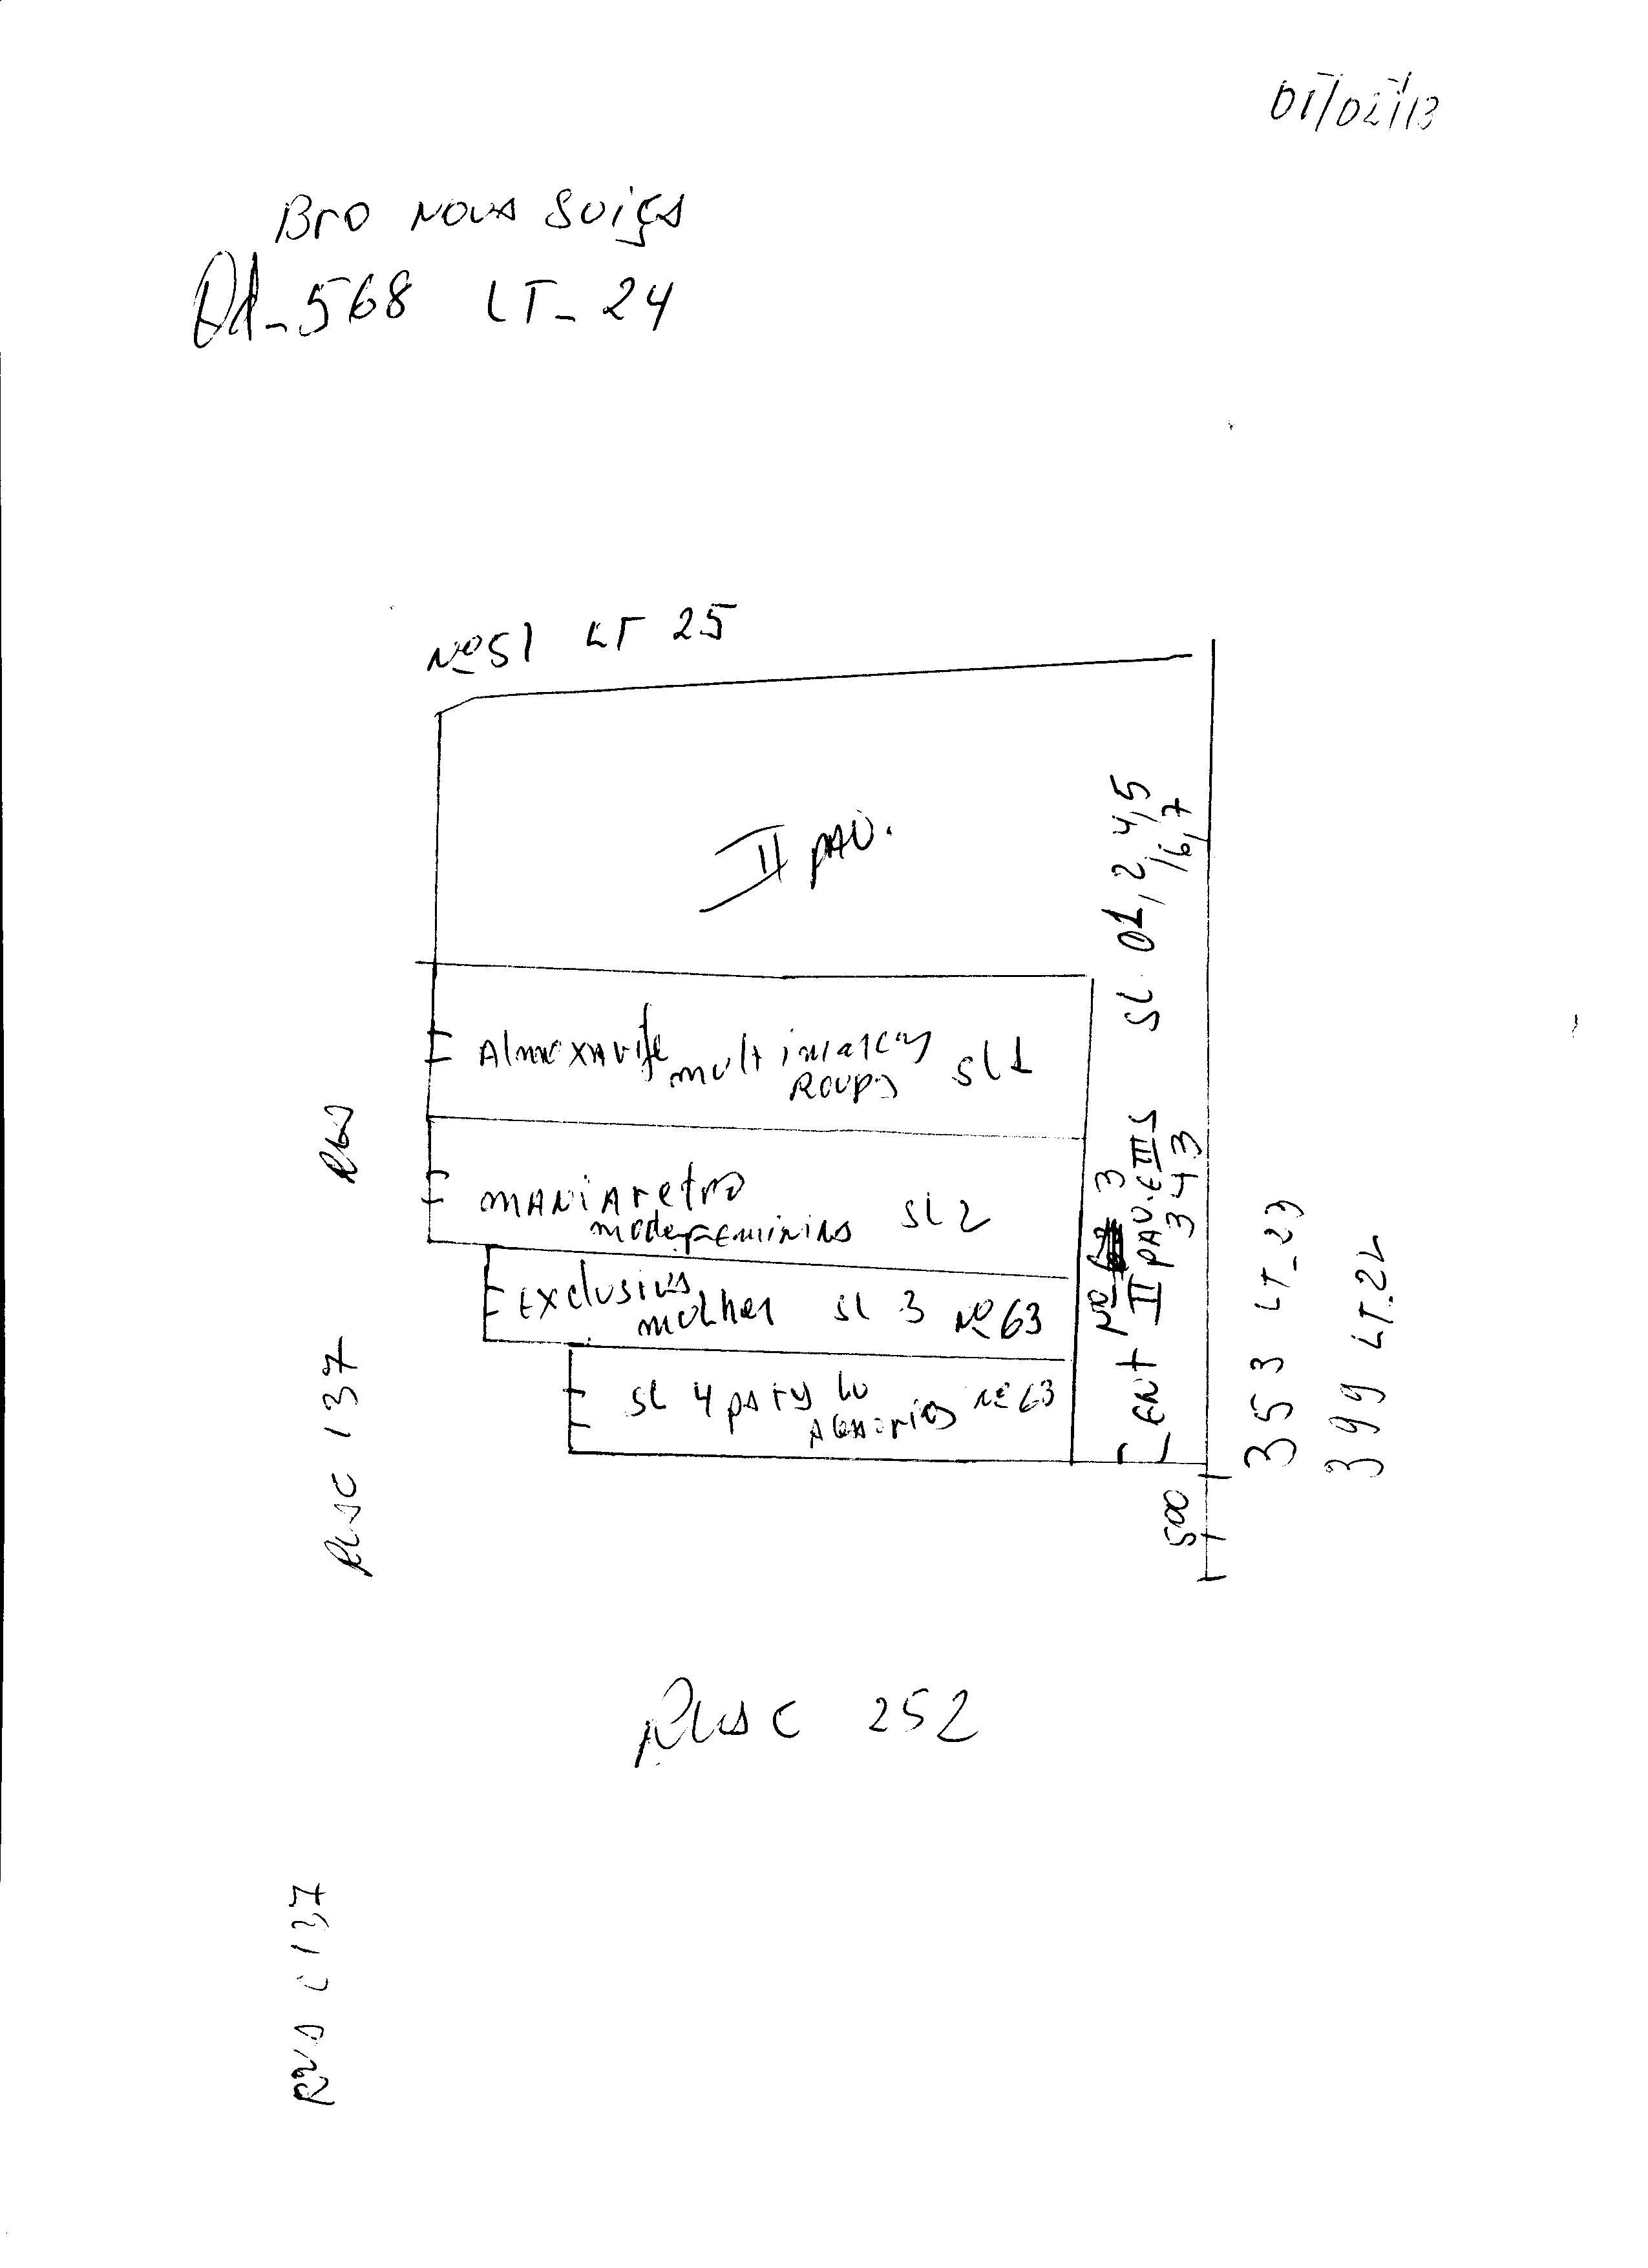 01/02/13
Bro Nova Suiça
Qd_568 LT_24
Nº51 LT 25
II PAV.
multimarcas
Roupas SL1
MANiAretro
moda FEMININA SL2
Exclusiva
mulher SL 3 Nº63
SL 4 party
Nº63
Ent Nº 3
II PAV. E III
343
SL 01, 2 4,5
6,7
500
353 LT_23
399 LT_22
Rua C 137
Rua C 252
Rua C 137